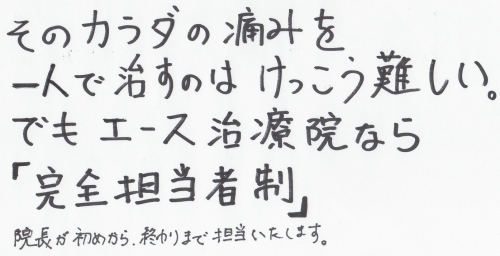 そのカラダの痛みを
一人で治すのは けっこう難しい。
でも エース治療院なら
「完全担当者制」
院長が初めから、終わりまで担当いたします。